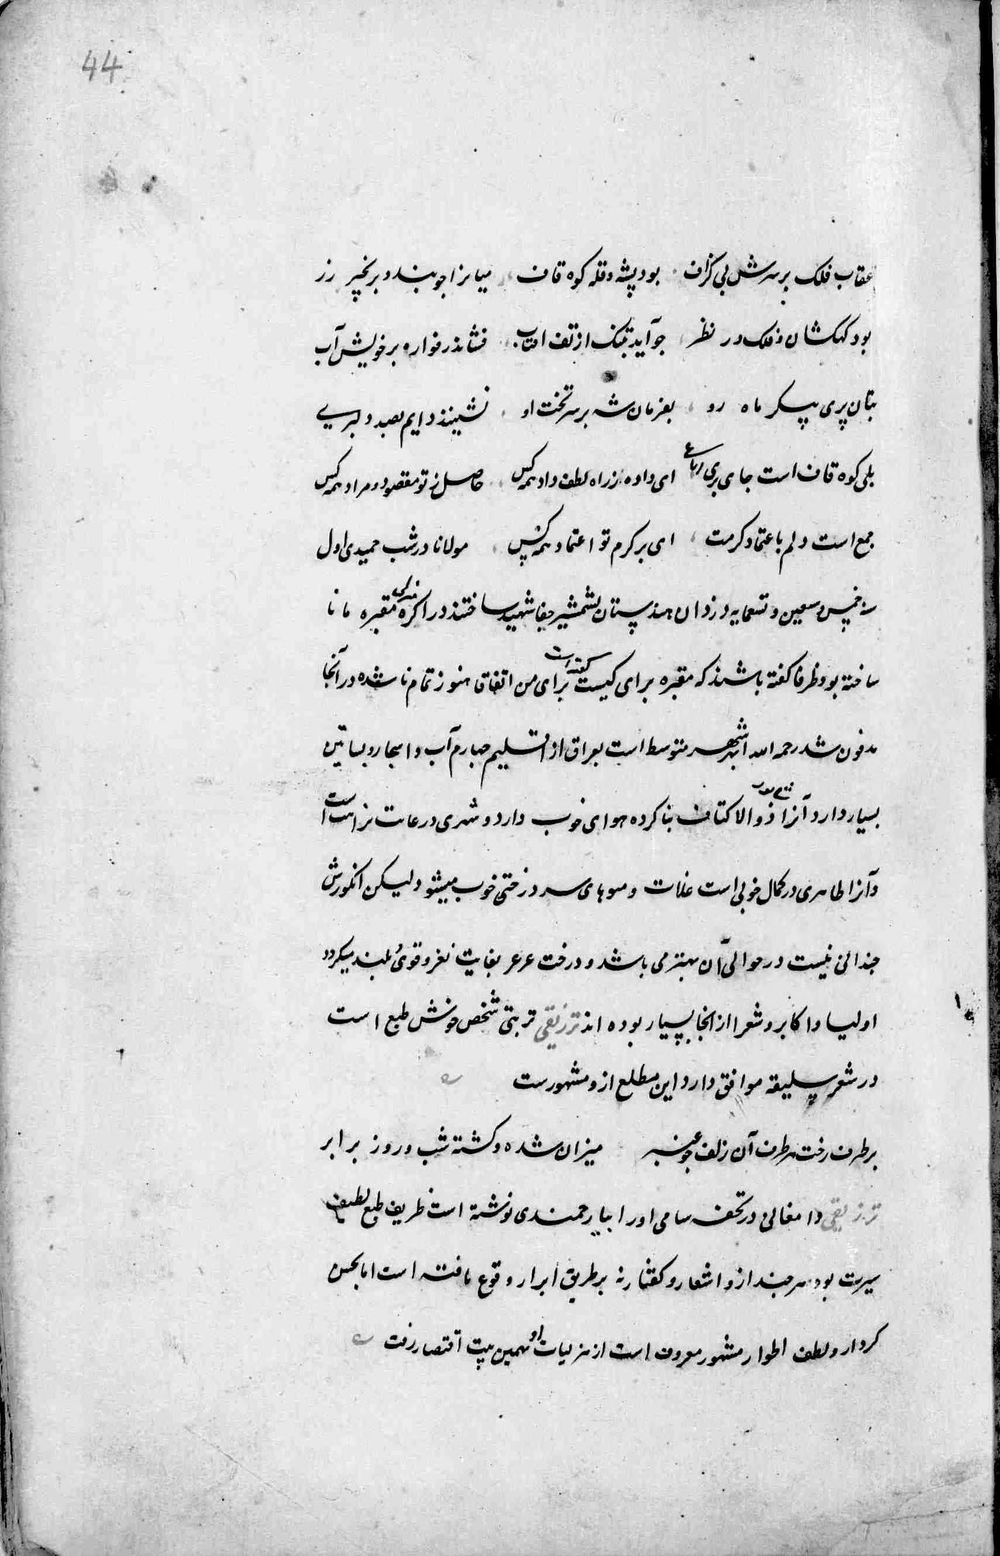 44
عقاب فلک بر سرش بی گزاف بود پشه و قله کوه قاف میانرا جو بندد بزنجیر زر
بود کهکشان و فلک در نظر جو آید بتنک از تف افتاب فشاند ز فواره بر خویش آب
بتان پری پیکر ماه رو بفرمان شه بر سر تخت او نشینند دایم بصد دلبری
بلی کوه قاف است جای پری رباعی ای داده ز راه لطف داد همه کس حاصل ز تو مقصود و مراد همه کس
جمع است دلم باعتماد کرمت ای بر کرم تو اعتماد همه کس مولانا در شب جمیدی اول
سنه خمس و سعین و تسعمایه دزدان هندستان بشمشیر جفا شهید ساختند در اکره مقبره مانا
ساخته بود ظرفا کفته باشند که مقبره برای کیست کفته است برای من اتفاقا هنوز تمام نا شده در آنجا
مدفون شد رحمه الله ابهر شهر متوسط است بعراق از اقلیم جهارم آب و اشجار و بساتین
بسیار دارد آنرا ذوالاکتاف بنا کرده هوای خوب دارد و شهری در غایت نزاهت است
و آنرا ظاهری در کمال خوبی است غلات و میوهای سردرختی خوب میشود لیکن انکورش
جندانی نیست در حوالی آن بهتر می باشد و درخت عرعر بغایت نغز و قوی بلند میکردد
اولیا و اکابر و شعرا از انجا بسیار بوده اند تزریقی تربتی شخص خوش طبع است
در شعر سلیقه موافق دارد این مطلع ازو مشهورست
بر طرف رخت هر طرف آن زلف جو عنبر میزان شده و کشته شب و روز برابر
تزریقی دامغانی در تحفه سامی او را بیارجمندی نوشته است ظریف طبع لطیف
سیرت بود هر جند ازو اشعار و کفتار نه بر طریق ابرار وقوع یافته است اما بحسن
کردار و لطف اطوار مشهور معروف است از هزلیات او بهمین بیت اقتصار رفت